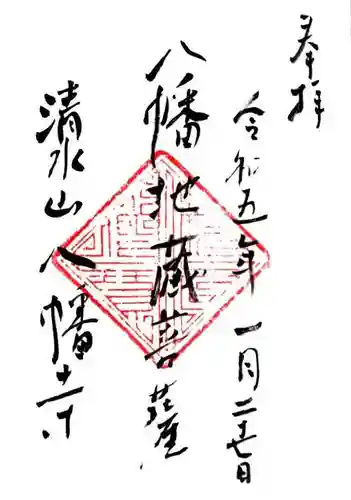 奉拝
令和五年一月二十七日
八幡地蔵菩薩
清水山八幡寺